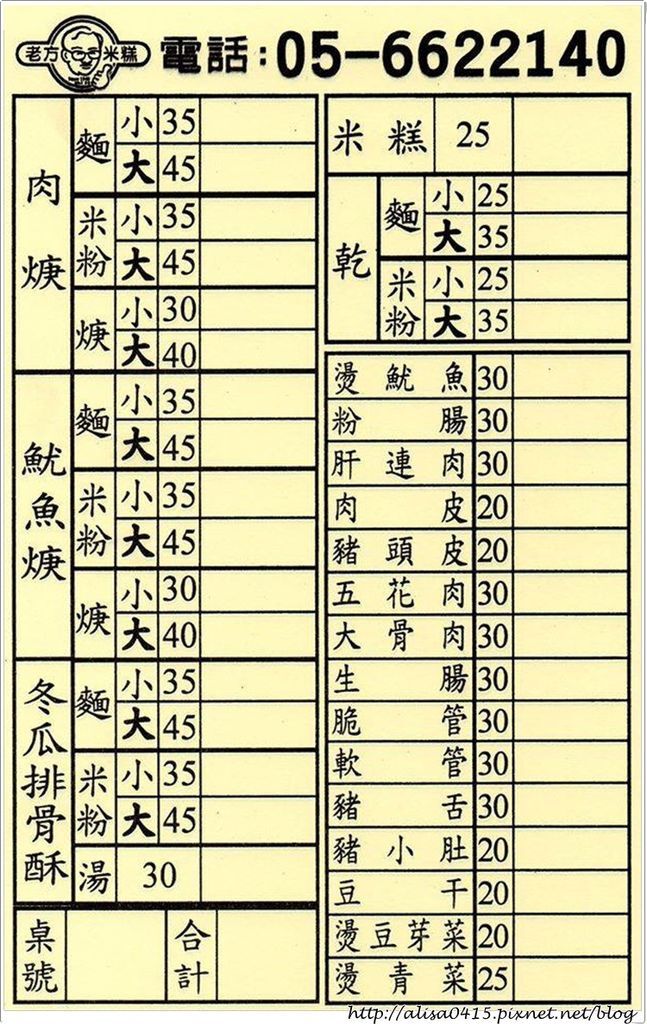 老方米糕 電話:05-6622140
肉焿
麵 小 35
大 45
米粉 小 35
大 45
焿 小 30
大 40
魷魚焿
麵 小 35
大 45
米粉 小 35
大 45
焿 小 30
大 40
冬瓜排骨酥
麵 小 35
大 45
米粉 小 35
大 45
湯 30
桌號 合計
米糕 25
乾
麵 小 25
大 35
米粉 小 25
大 35
燙魷魚 30
粉腸 30
肝連肉 30
肉皮 20
豬頭皮 20
五花肉 30
大骨肉 30
生腸 30
脆管 30
軟管 30
豬舌 30
豬小肚 20
豆干 20
燙豆芽菜 20
燙青菜 25
http://alisa0415.pixnet.net/blog